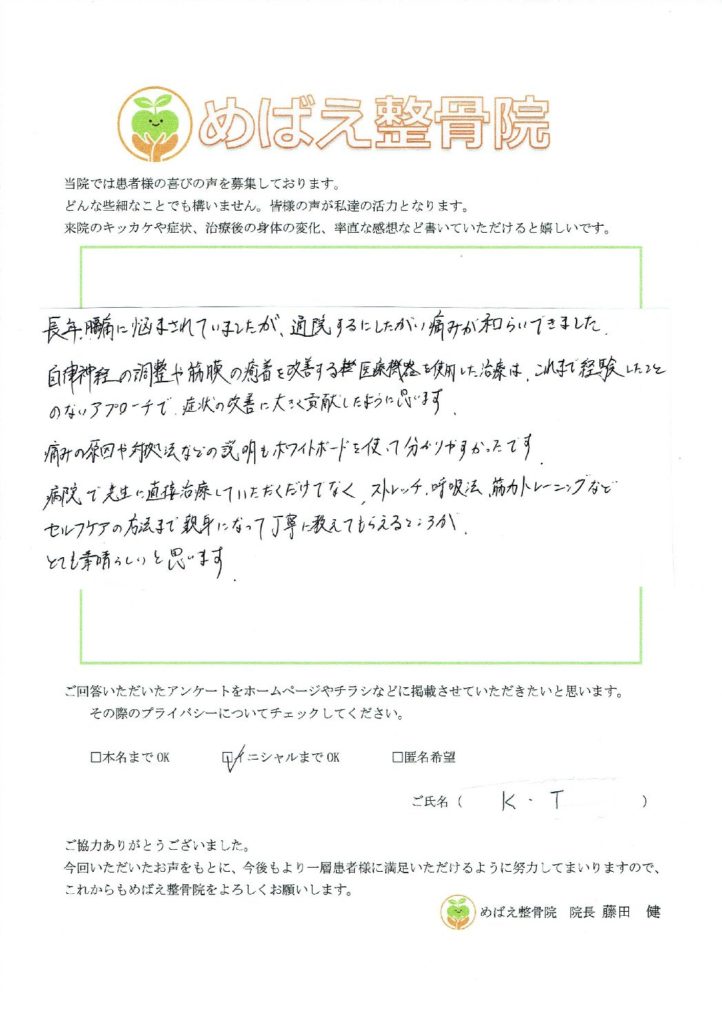 めばえ整骨院
当院では患者様の喜びの声を募集しております。
どんな些細なことでも構いません。皆様の声が私達の活力となります。
来院のキッカケや症状、治療後の身体の変化、率直な感想など書いていただけると嬉しいです。
長年、腰痛に悩まされていましたが、通院するにしたがい痛みが和らいできました。
自律神経の調整や筋膜の癒着を改善する医療機器を使用した治療は、これまで経験したこと
のないアプローチで、症状の改善に大きく貢献したように思います。
痛みの原因や対処法などの説明もホワイトボードを使って分かりやすかったです。
病院で先生に直接治療していただくだけでなく、ストレッチ、呼吸法、筋力トレーニングなど
セルフケアの方法まで親身になって丁寧に教えてもらえるところが、
とても素晴らしいと思います。
ご回答いただいたアンケートをホームページやチラシなどに掲載させていただきたいと思います。
その際のプライバシーについてチェックしてください。
□本名まで OK ☑イニシャルまで OK □匿名希望
ご氏名（ K・T ）
ご協力ありがとうございました。
今回いただいたお声をもとに、今後もより一層患者様に満足いただけるように努力してまいりますので、
これからもめばえ整骨院をよろしくお願いします。
めばえ整骨院 院長 藤田 健